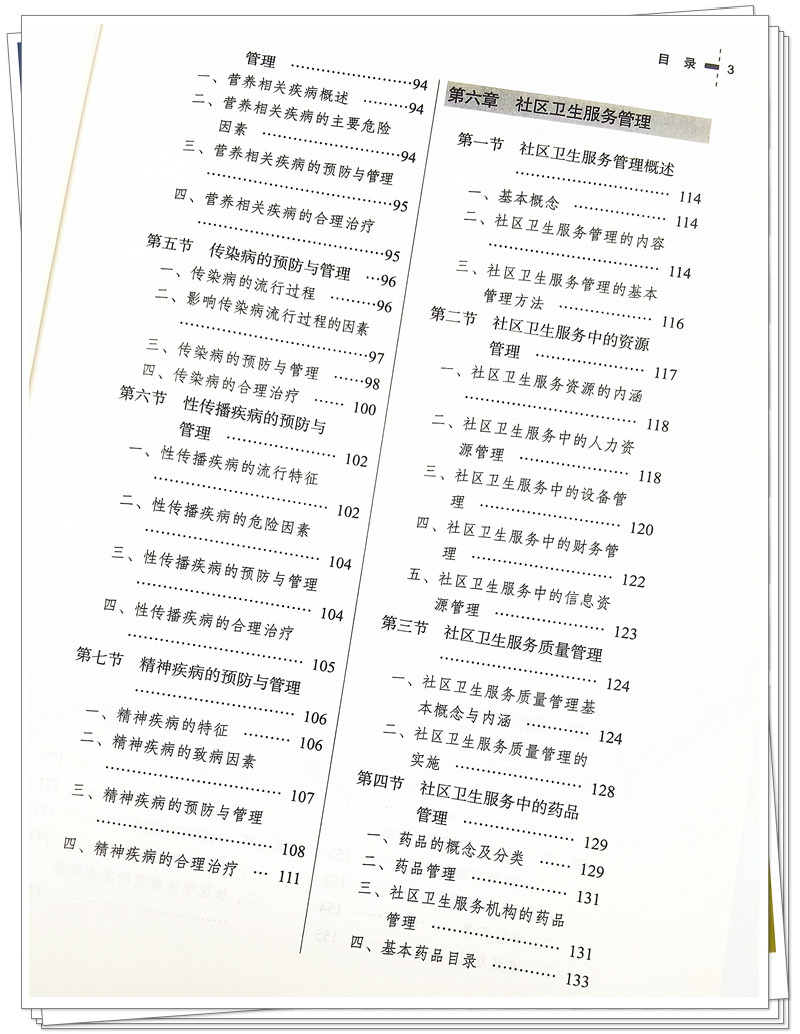 目 录 3
管理 ……………… 94
一、营养相关疾病概述 ……… 94
二、营养相关疾病的主要危险
因素 ……………… 94
三、营养相关疾病的预防与管理
……………… 95
四、营养相关疾病的合理治疗
……………… 95
第五节 传染病的预防与管理 … 96
一、传染病的流行过程 ……… 96
二、影响传染病流行过程的因素
……………… 97
三、传染病的预防与管理 …… 98
四、传染病的合理治疗 …… 100
第六节 性传播疾病的预防与
管理 ……………… 102
一、性传播疾病的流行特征
……………… 102
二、性传播疾病的危险因素
……………… 104
三、性传播疾病的预防与管理
……………… 104
四、性传播疾病的合理治疗
……………… 105
第七节 精神疾病的预防与管理
……………… 106
一、精神疾病的特征 ……… 106
二、精神疾病的致病因素
……………… 107
三、精神疾病的预防与管理
……………… 108
四、精神疾病的合理治疗 … 111
第六章 社区卫生服务管理
第一节 社区卫生服务管理概述
……………… 114
一、基本概念 ……………… 114
二、社区卫生服务管理的内容
……………… 114
三、社区卫生服务管理的基本
管理方法 ……………… 116
第二节 社区卫生服务中的资源
管理 ……………… 117
一、社区卫生服务资源的内涵
……………… 118
二、社区卫生服务中的人力资
源管理 ……………… 118
三、社区卫生服务中的设备管
理 ……………… 120
四、社区卫生服务中的财务管
理 ……………… 122
五、社区卫生服务中的信息资
源管理 ……………… 123
第三节 社区卫生服务质量管理
……………… 124
一、社区卫生服务质量管理基
本概念与内涵 ……… 124
二、社区卫生服务质量管理的
实施 ……………… 128
第四节 社区卫生服务中的药品
管理 ……………… 129
一、药品的概念及分类 …… 129
二、药品管理 ……………… 131
三、社区卫生服务机构的药品
管理 ……………… 131
四、基本药品目录 ……… 133